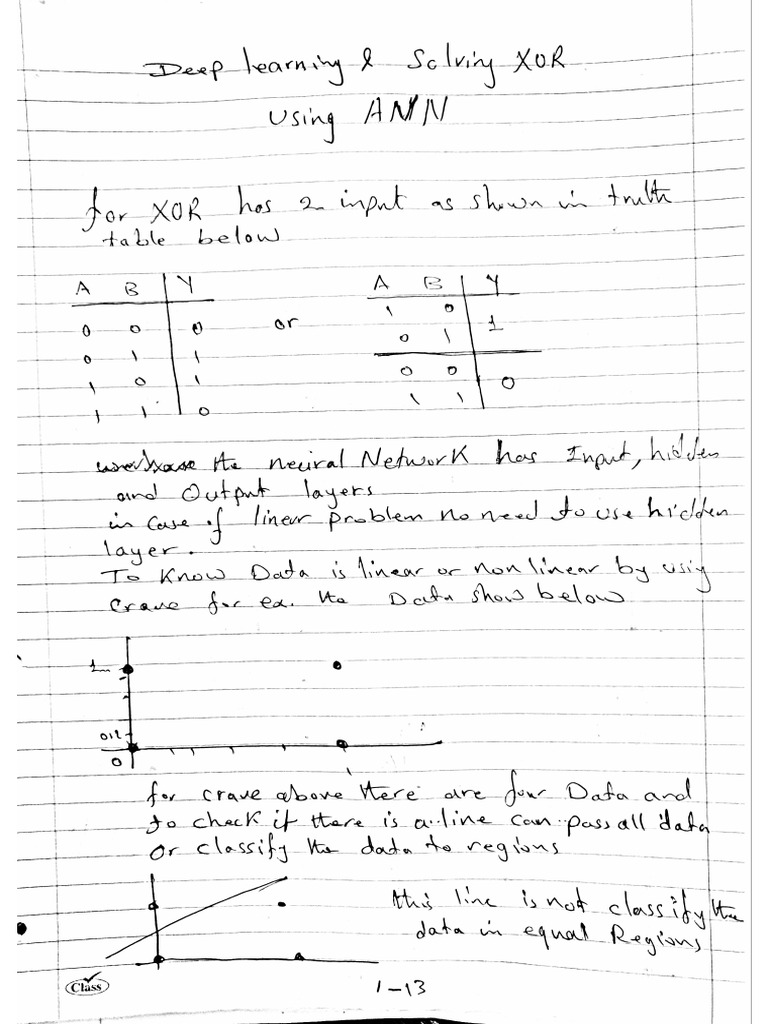 Deep learning & Solving XOR
Using ANN
for XOR has 2 input as shown in truth
table below
A B Y
0 0 0
0 1 1
1 0 1
1 1 0
or
A B Y
1 0
0 1 1
0 0
1 1 0
the neural Network has Input, hidden
and Output layers
in case of linear problem no need to use hidden
layer.
To know Data is linear or non linear by usig
crave for ex. the Data show below
1
0.2
0
1
for crave above there are four Data and
to check if there is a line can pass all data
or classify the data to regions
this line is not classify the
data in equal Regions
Class
1-13